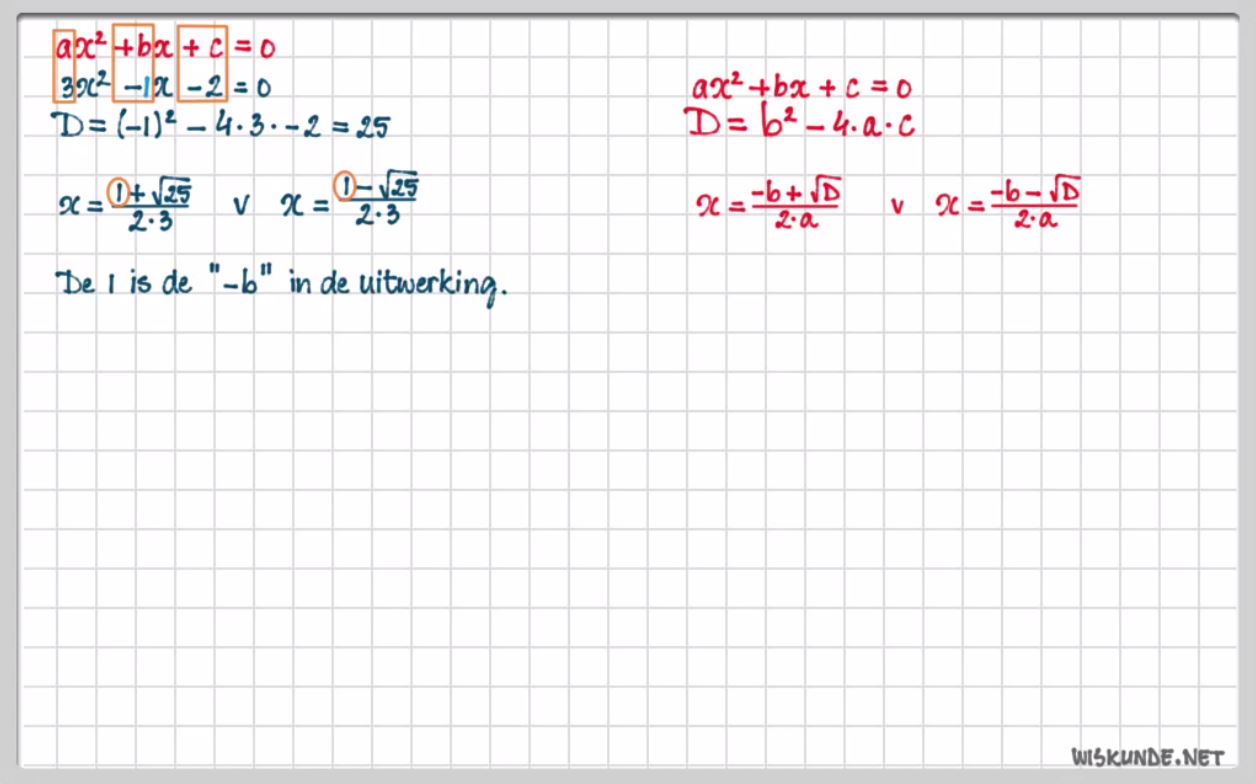 ax² +bx + c = 0
3x² -1x - 2 = 0
D = (-1)² - 4·3·-2 = 25
x = (1+√25)/(2·3) v x = (1-√25)/(2·3)
De 1 is de "-b" in de uitwerking.
ax² + bx + c = 0
D = b² - 4·a·c
x = (-b+√D)/(2·a) v x = (-b-√D)/(2·a)
WISKUNDE.NET